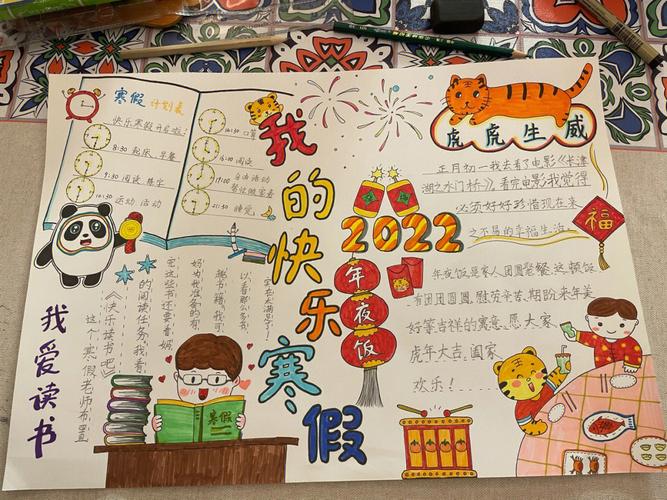 寒假 计划表
快乐寒假开启啦!
8:30 起床、早餐
9:30 阅读、练字
10:30 运动 活动
14:30 口算
16:30 阅读
19:00 自由活动
帮忙做家务
21:30 睡觉
我的快乐寒假
虎虎生威
正月初一我去看了电影《长津
湖之水门桥》,看完电影我觉得
必须好好珍惜现在来
之不易的幸福生活。
福
2022
年夜饭
年夜饭是家人团圆聚餐,这顿饭
有团团圆圆,慰劳辛苦,期盼来年美
好等吉祥的寓意。愿大家
虎年大吉!阖家
欢乐!
我爱读书
这个寒假老师布置
《快乐读书吧》
的阅读任务,我看
完这些书还要看妈
妈为我准备的有
趣书籍,我可
以看那么多书,
实在太满足了!
寒假